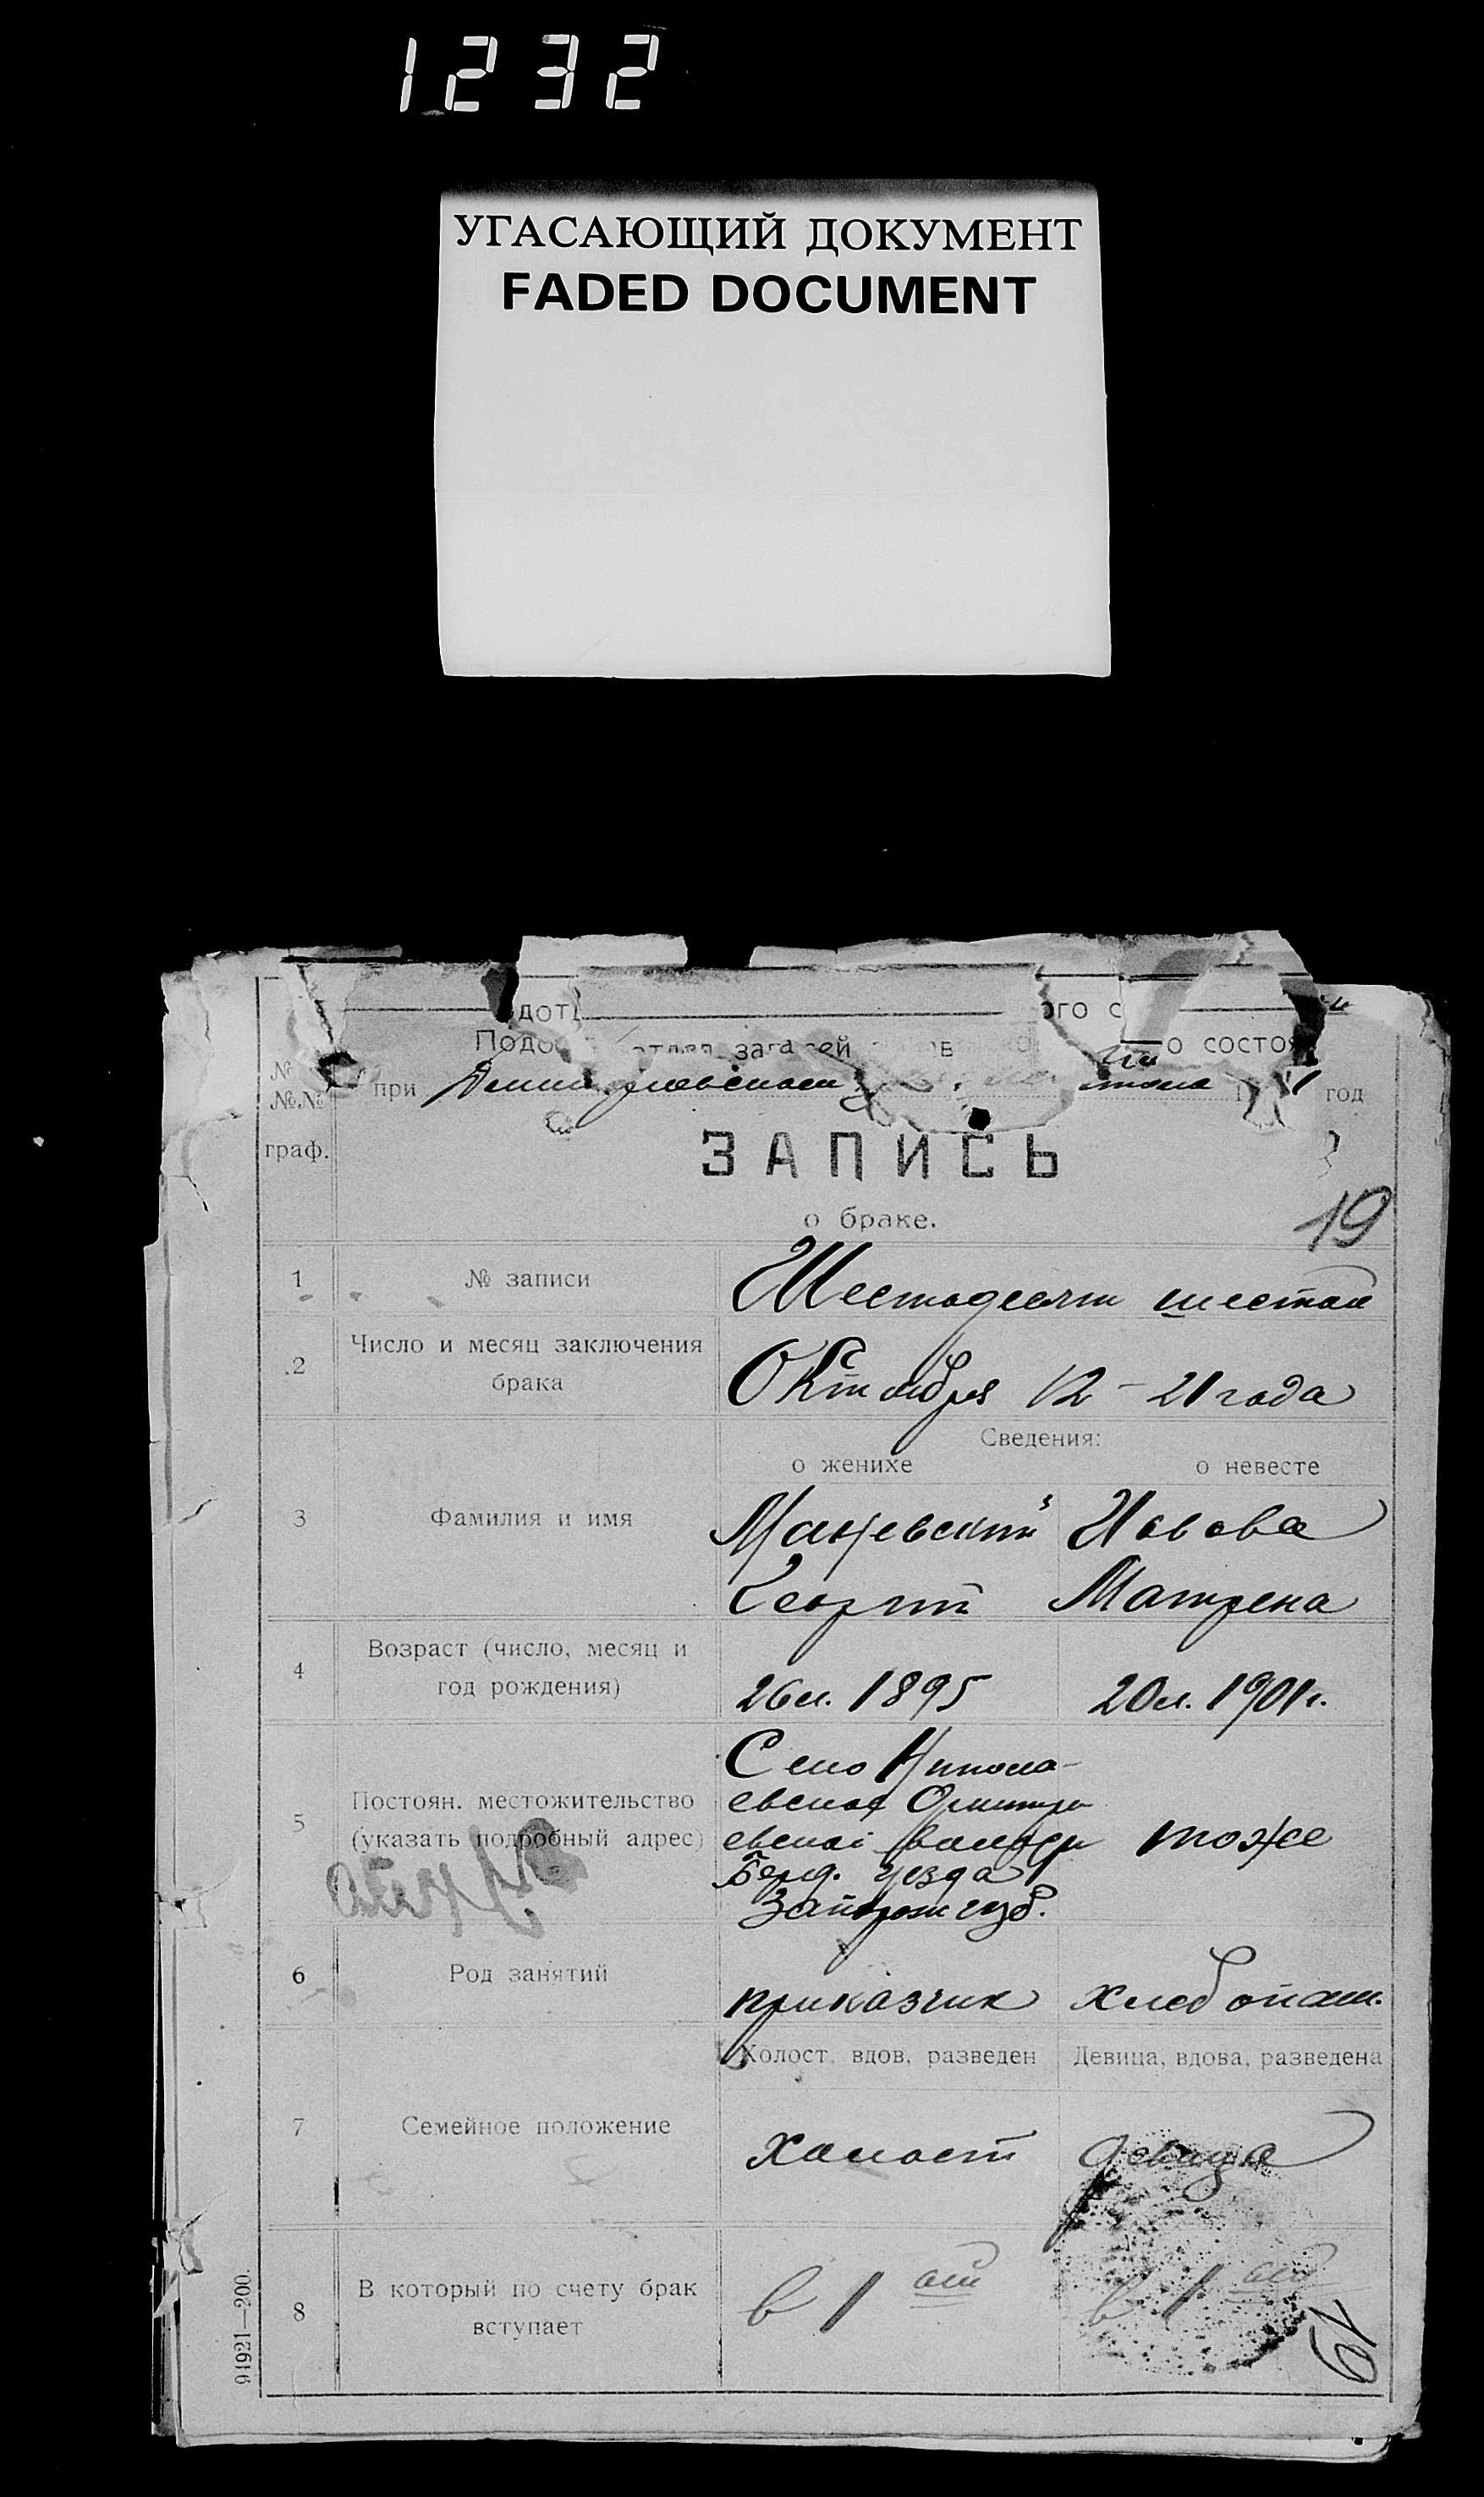 1232
УГАСАЮЩИЙ ДОКУМЕНТ
FADED DOCUMENT
№
№№
граф.
при
год
ЗАПИСЬ
о браке.
19
1
№ записи
Шестодесят шестой
2
Число и месяц заключения
брака
Октября 12 - 21 года
Сведения:
о женихе
о невесте
3
Фамилия и имя
Иовова
Георгий
Матрена
4
Возраст (число, месяц и
год рождения)
26 л. 1895
20 л. 1901 г.
5
Постоян. местожительство
(указать подробный адрес)
Село Никола-
евской
волости
Берд. уезда
Запорож губ.
тоже
6
Род занятий
приказчик
хлебопаш.
Холост, вдов, разведен
Девица, вдова, разведена
7
Семейное положение
Холост
девица
8
В который по счету брак
вступает
в 1 ый
в 1 ый
19
91921—200.